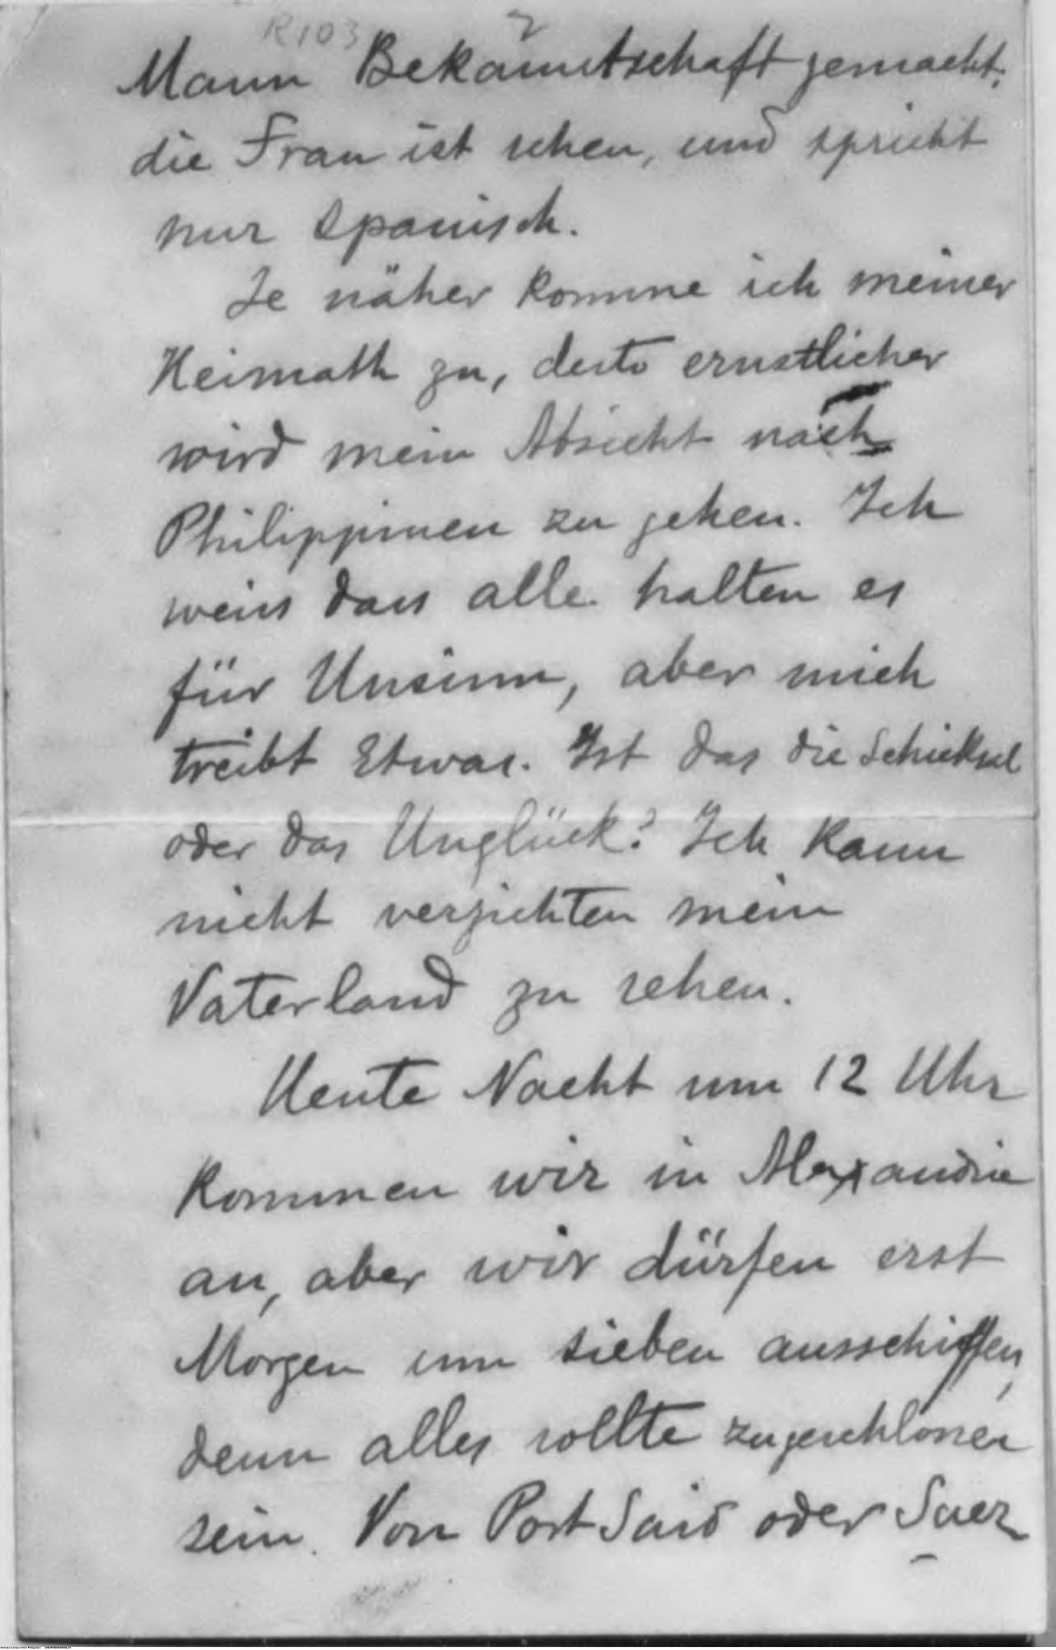 R103
2
Mann Bekanntschaft gemacht,
die Frau ist schen, und spricht
nur Spanisch.
Je näher komme ich meiner
Heimath zu, desto ernstlicher
wird mein Absicht nach
Philippinen zu gehen. Ich
weiss dass alle halten es
für Unsinn, aber mich
treibt Etwas. Ist das die Schicksel
oder das Unglück? Ich kann
nicht verzichten mein
Vaterland zu sehen.
Heute Nacht um 12 Uhr
kommen wir in Alexandrie
an, aber wir dürfen erst
Morgen um sieben ausschiffen,
denn alles sollte zugeschlossen
sein. Von Port Said oder Suez